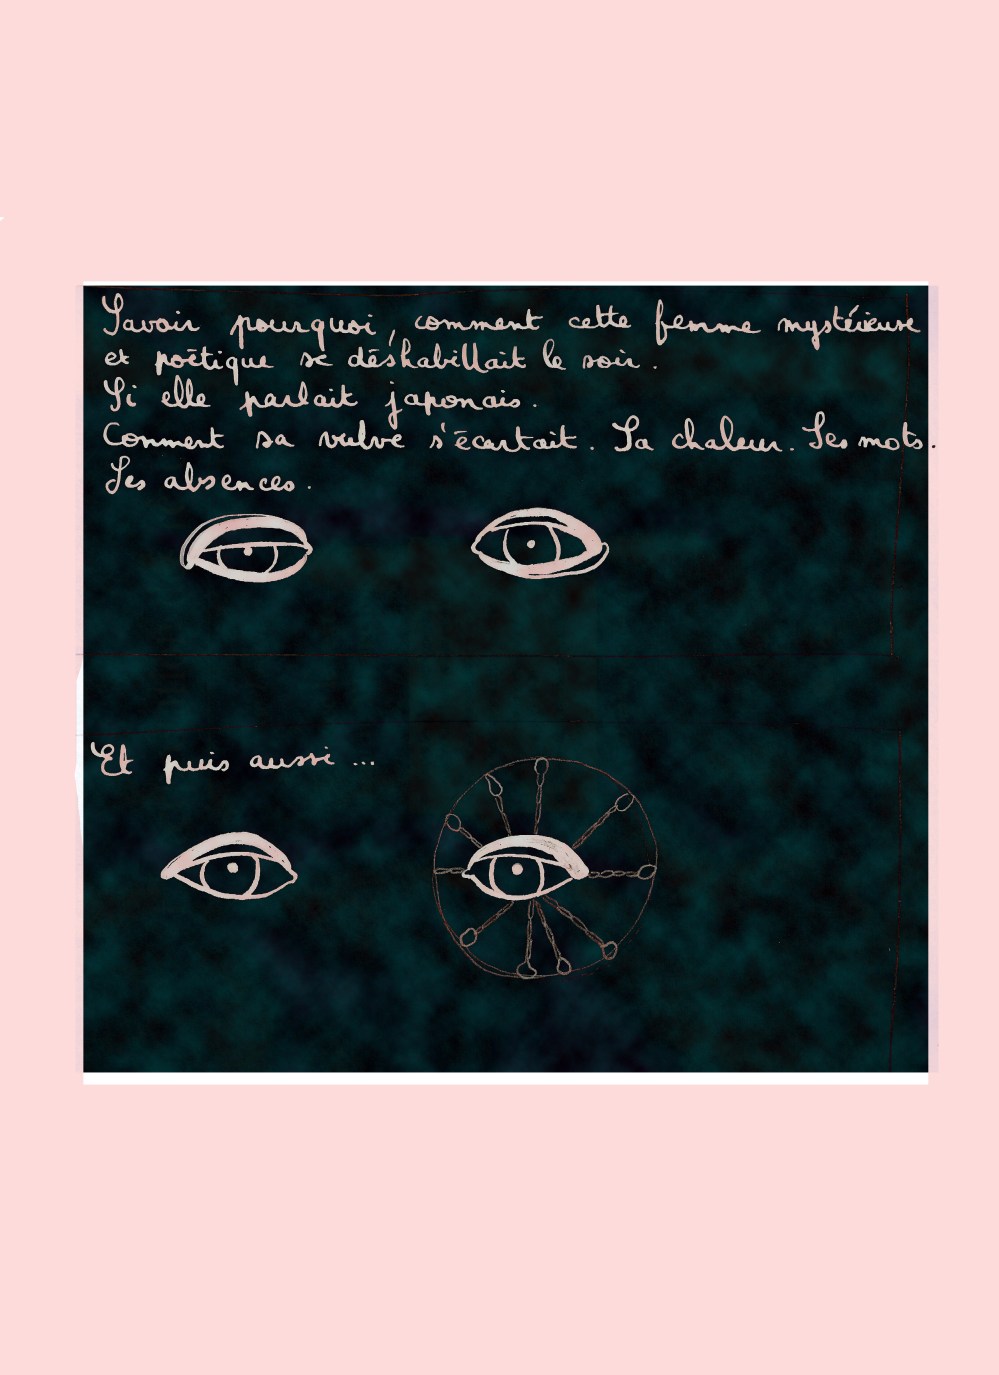 Savoir pourquoi, comment cette femme mystérieuse
et poétique se déshabillait le soir.
Si elle parlait japonais.
Comment sa vulve s'écartait. Sa chaleur. Ses mots.
Ses absences.
Et puis aussi ...